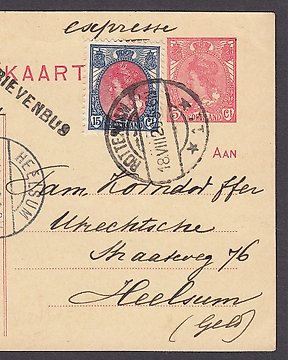 expresse
KAART
IEVENBUS
15 CT
ROTTERDAM
18.VIII.2
HEELSUM
AAN
Fam Korndorffer
Utrechtsche
Straatweg 76
Heelsum
(Geld)